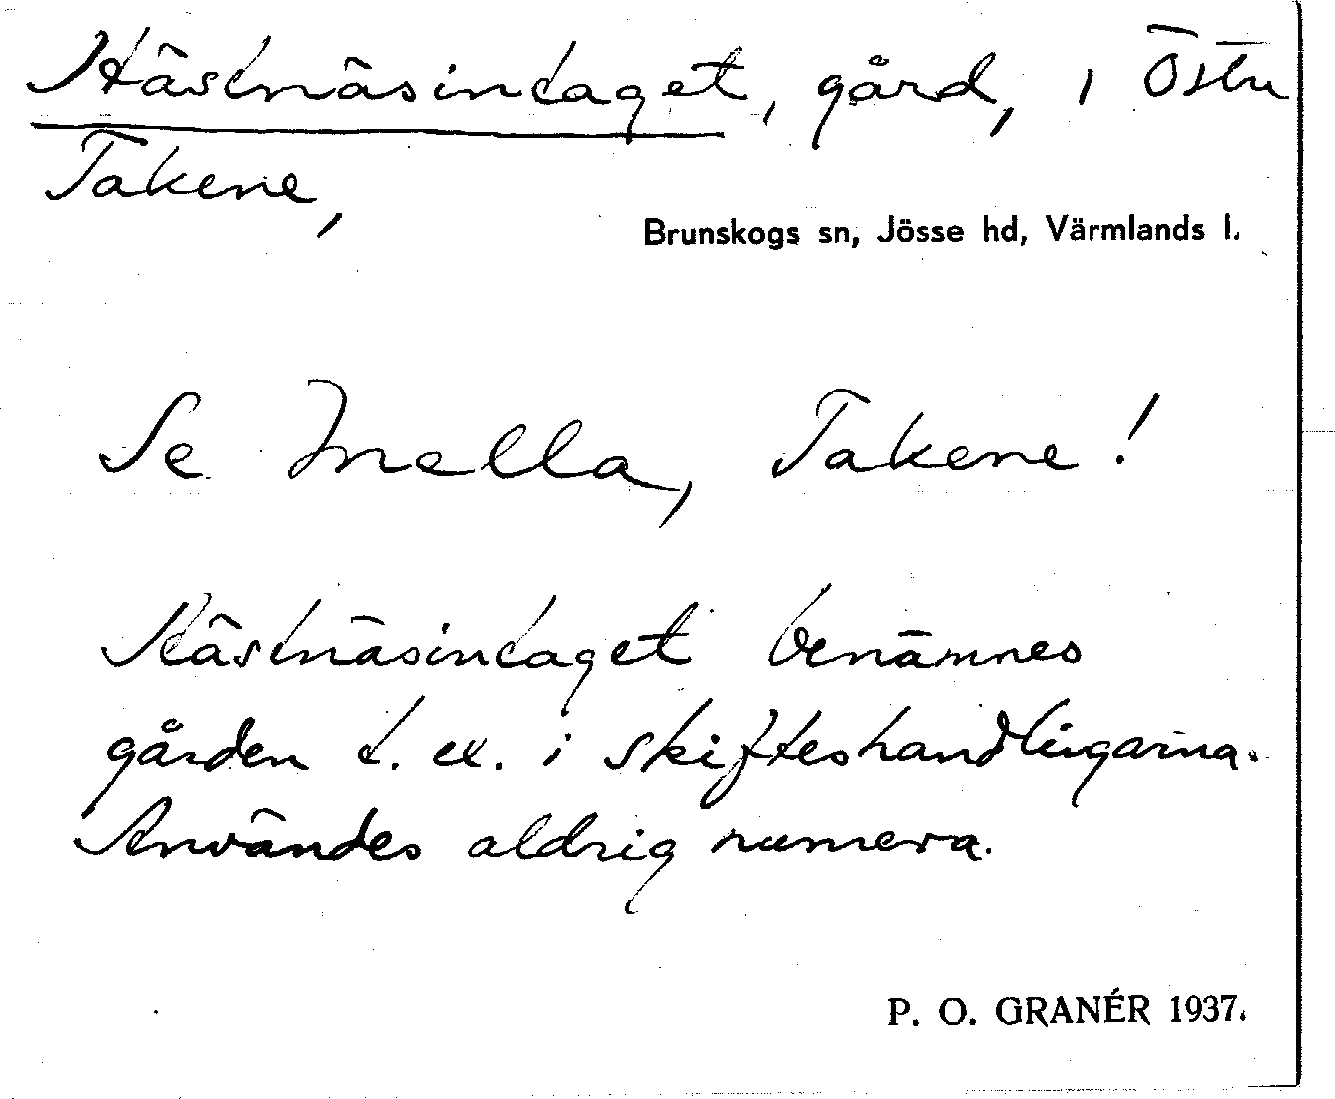 Hästnäsintaget, gård, i Östra
Takene,
Brunskogs sn, Jösse hd, Värmlands l.
Se Mella, Takene!
Hästnäsintaget benämnes
gården t. ex. i skifteshandlingarna.
Användes aldrig numera.
P. O. GRANÉR 1937.